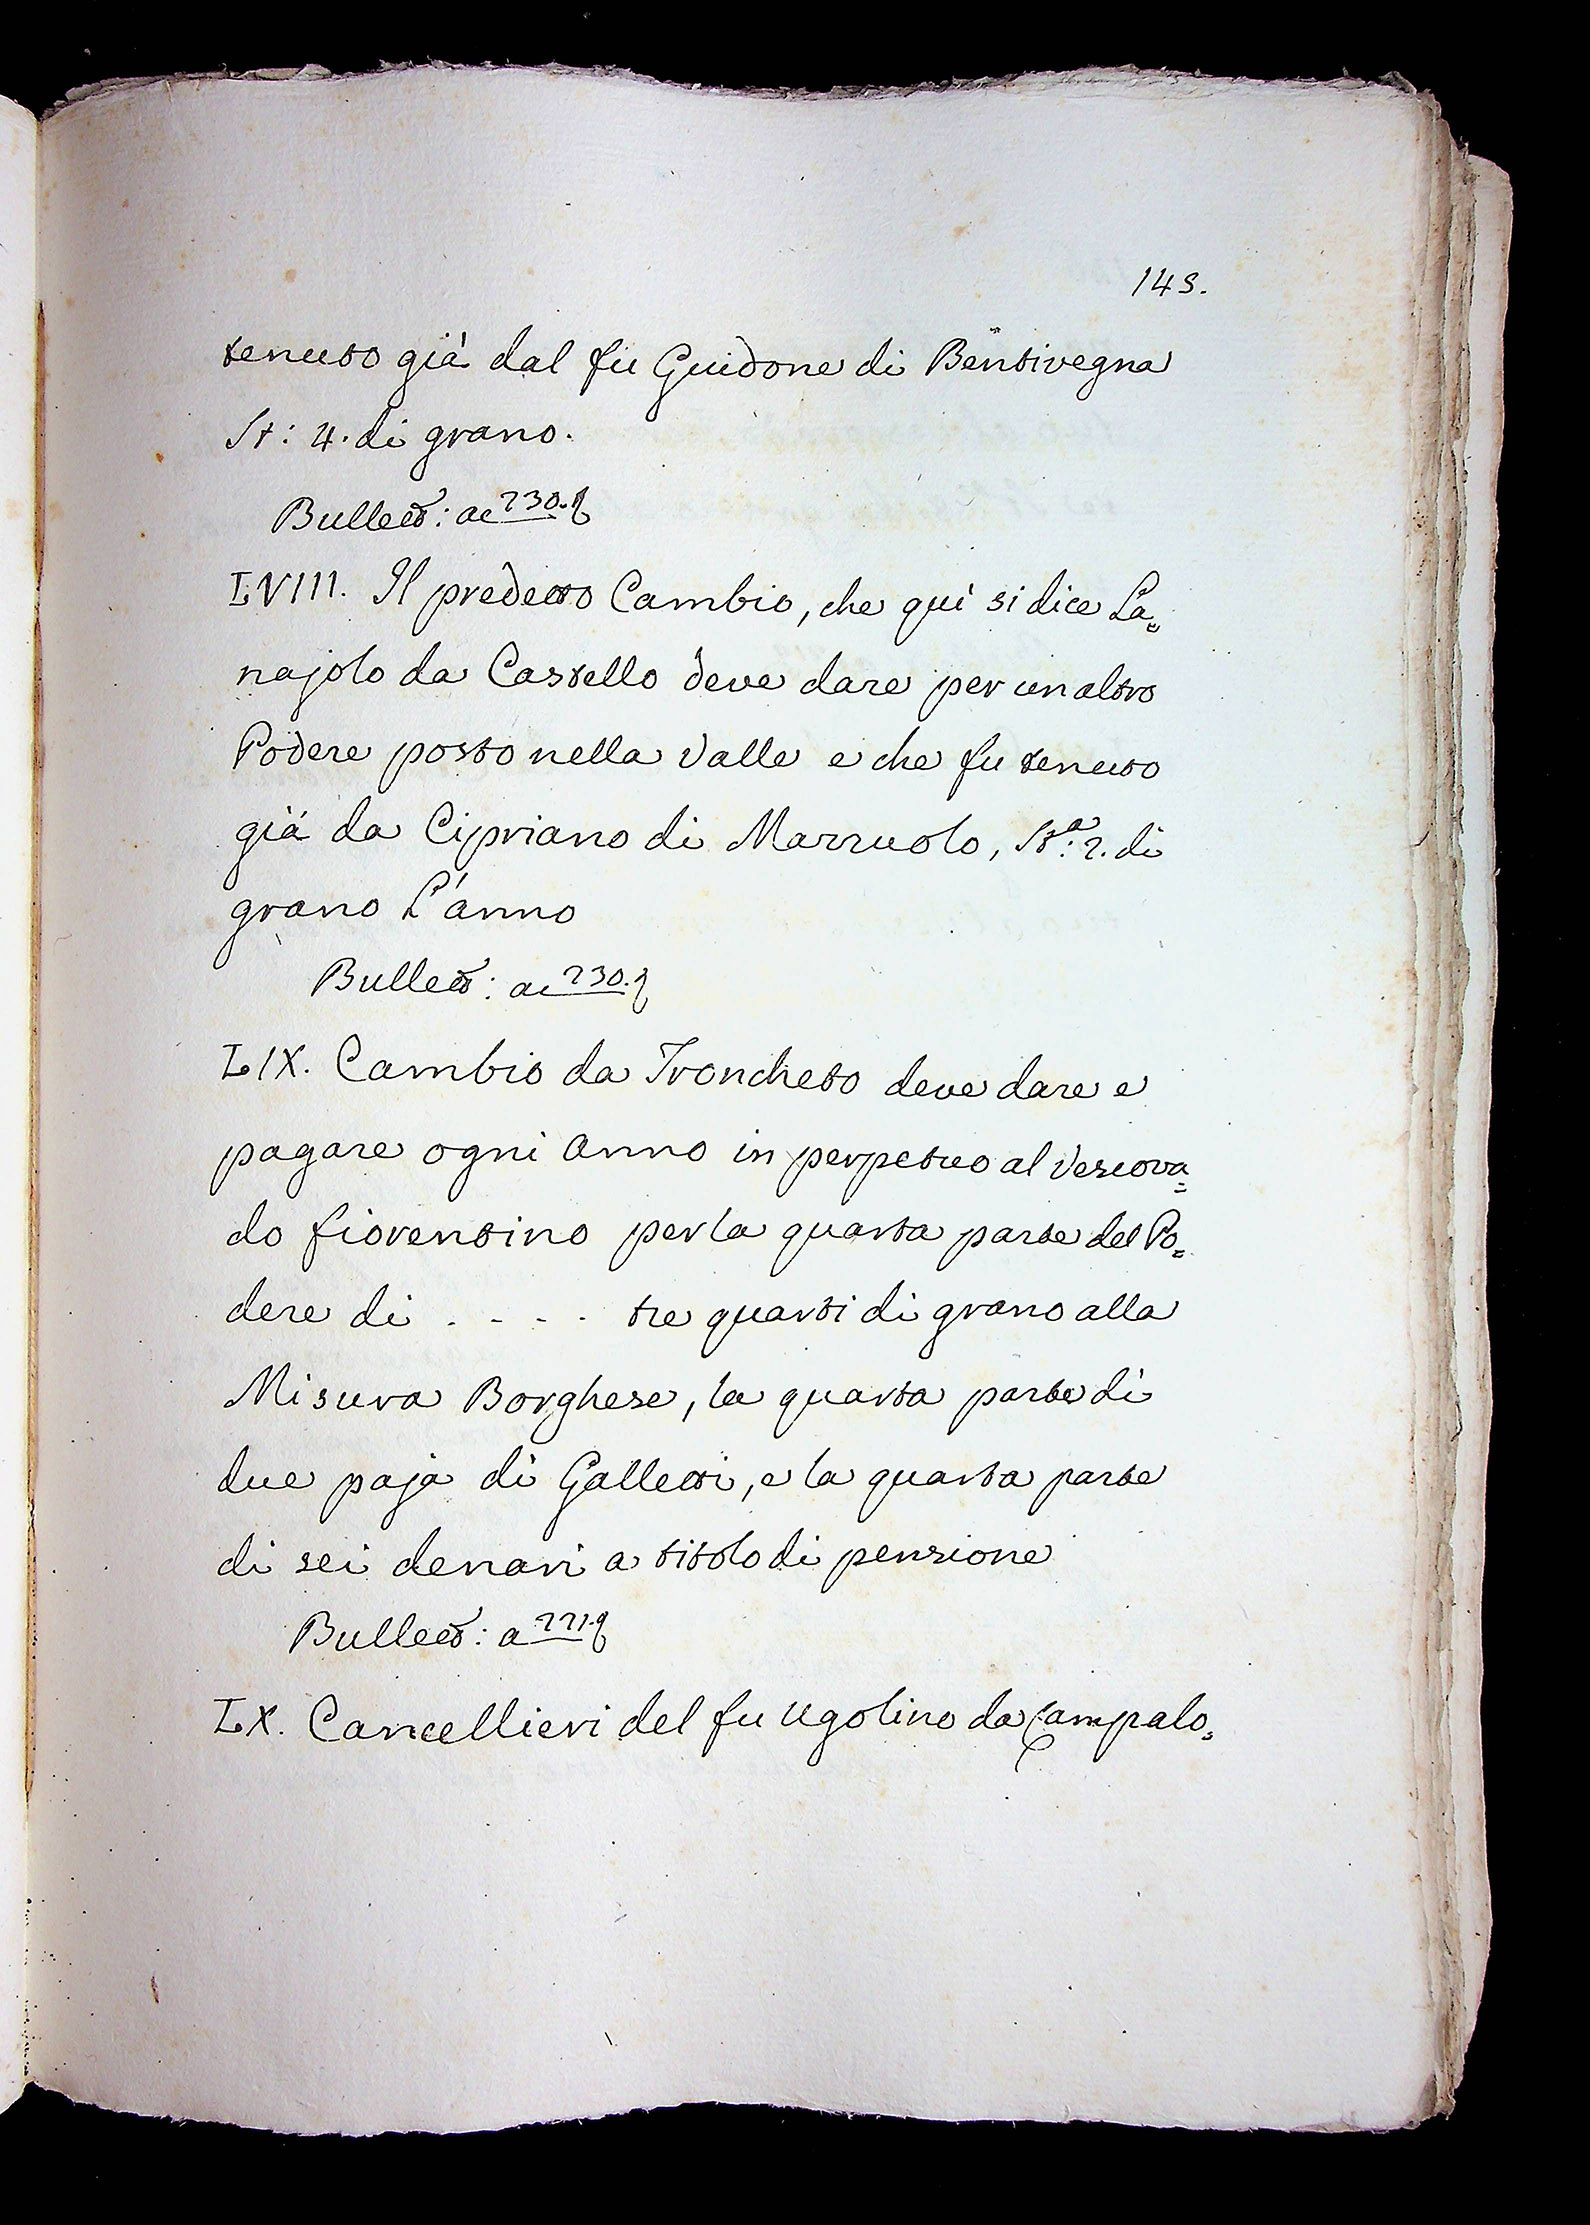 145.
tenuto già dal fu Guidone di Bentivegna
St: 4. di grano.
Bullett: ac 230.
LVIII. Il predetto Cambio, che quì si dice La=
najolo da Castello deve dare per un altro
Podere posto nella Valle e che fu tenuto
già da Cipriano di Marzuolo, St.a: 2. di
grano L'anno
Bullett: ac 230.
LIX. Cambio da Troncheto deve dare e
pagare ogni anno in perpetuo al Vescova=
do fiorentino per la quarta parte del Po=
dere di . - - . tre quarti di grano alla
Misura Borghese, la quarta parte di
due paja di Galletti, e la quarta parte
di sei denari a titolo di penzione
Bullett: a 221.
LX. Cancellieri del fu Ugolino da Campalo=